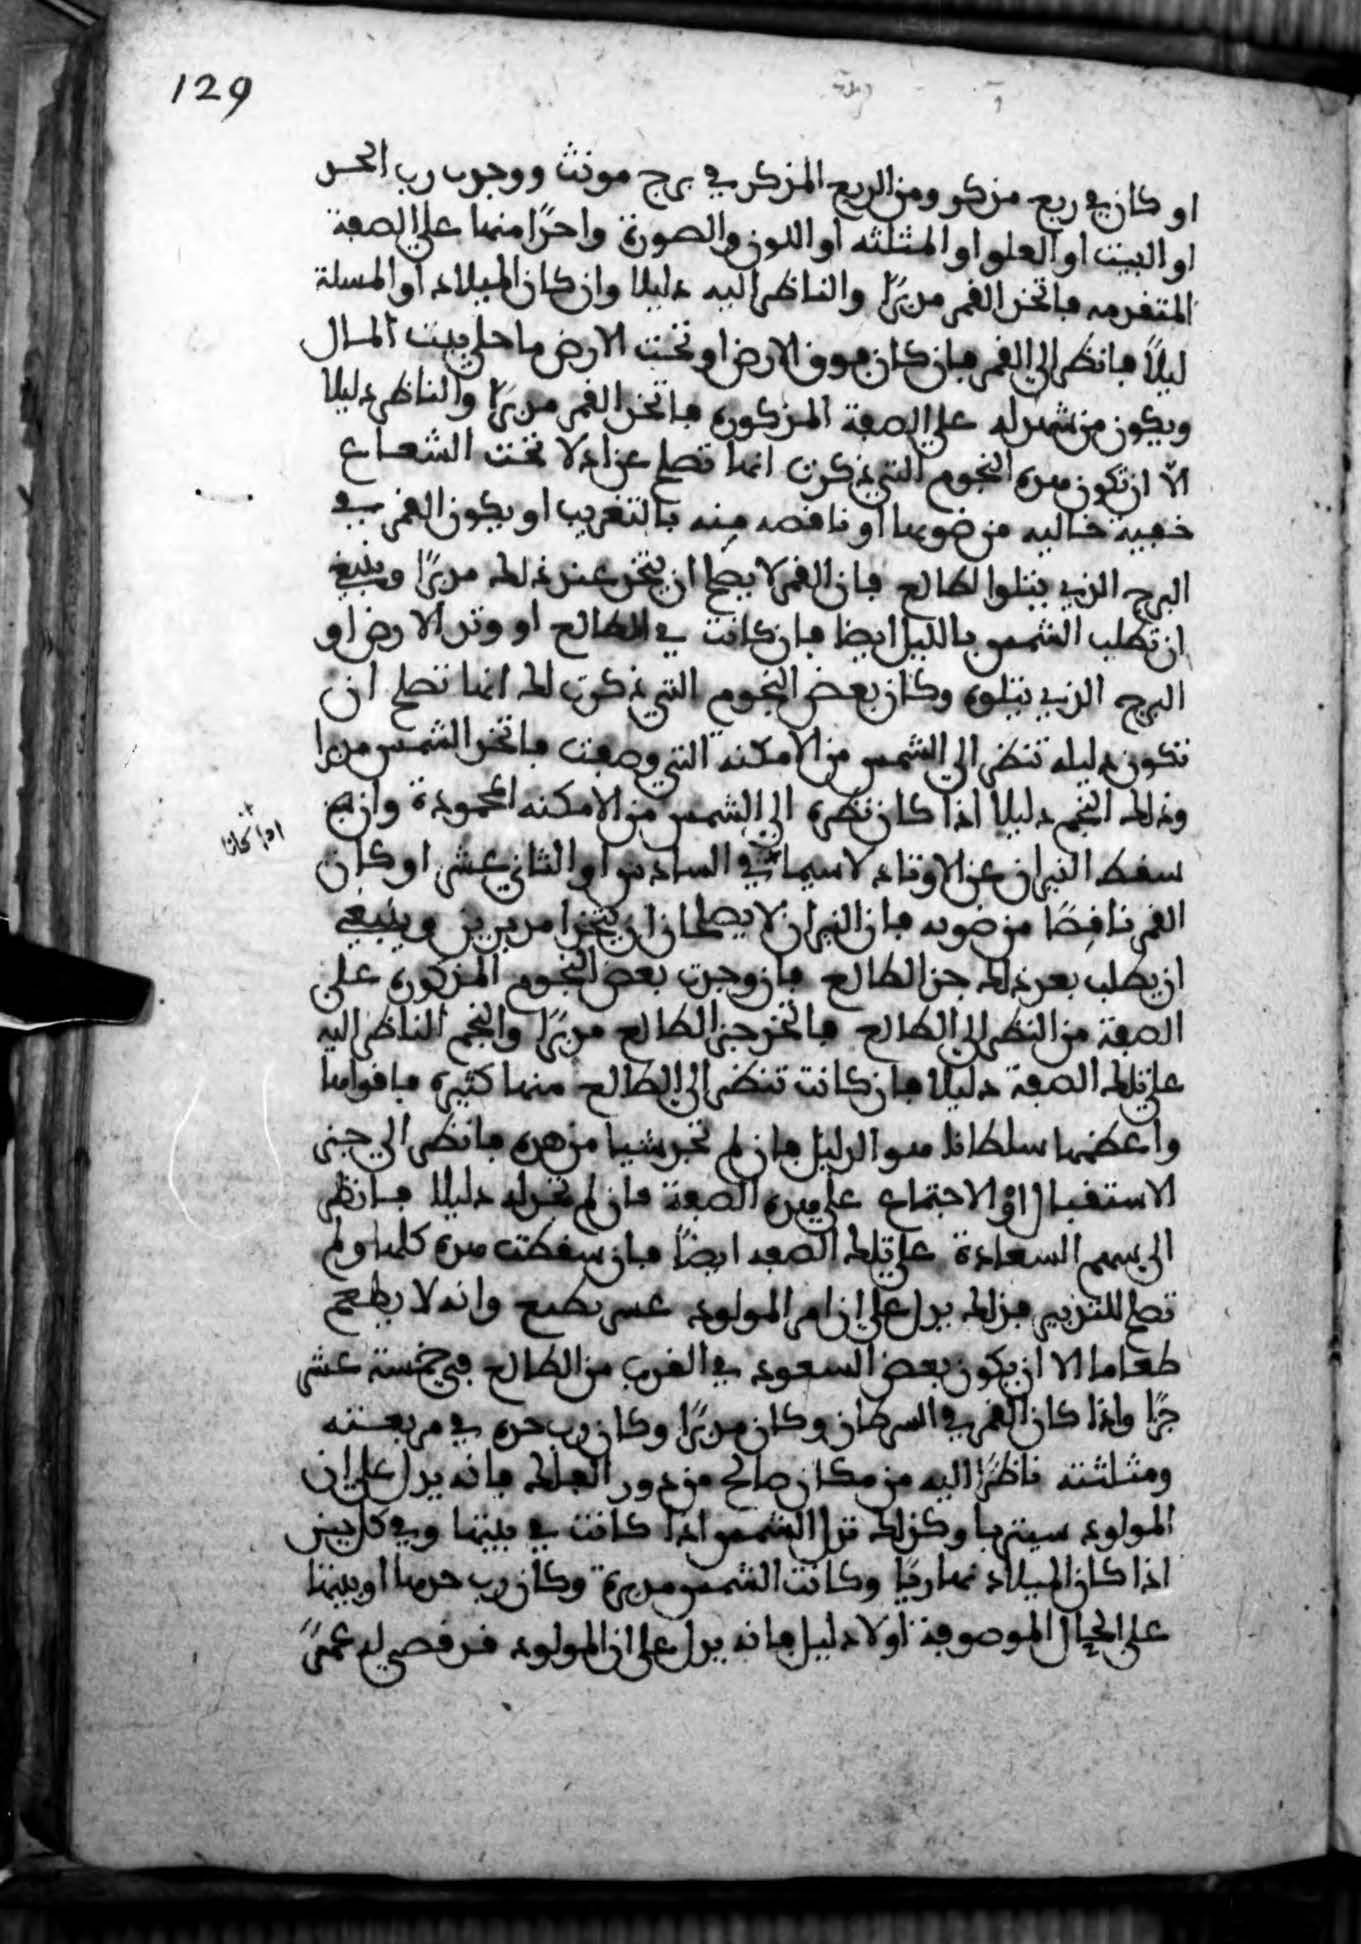 129
او كان في ربع مذكر ومن الربع المذكر في برج مونث ووجدت رب الحد
او البيت او العلو او المثلثه او اللون والصورة واحدًا منها على الصفة
المتقدمه فاتخذ القمر مدبرًا والناظر اليه دليلا وان كان الميلاد او المسلة
ليلًا فانظر الى القمر فان كان فوق الارض او تحت الارض ما حلى بيت المال
ويكون من شهد له على الصفة المذكوره فاتخذ القمر مدبرًا والناظر دليلا
الا ان تكون هذه النجوم التي ذكرت انها تصلح عزاد لا تحت الشعاع
خفية خاليه من ضويها او ناقصه منه بالتغريب او يكون القمر في
البرج الذي يتلوا الطالع فان القمر لا يصلح ان يتخذ عند ذلك مدبرًا وينبغي
ان تطلب الشمس بالليل ايضا فان كانت في الطالع او وتد الارض او
البرج الذي يتلوه وكان بعض النجوم التي ذكرت لك انها تصلح ان
تكون دليله تنظر الى الشمس من الامكنه التي وصفت فاتخذ الشمس مدبرا
وذلك النجم دليلا اذا كان نظره الى الشمس من الامكنه المحمودة وان
سقط النيران عن الاوتاد لا سيما في السادس او الثاني عشر او كان
القمر ناقصًا من ضويه فان النيران لا يصلحان ان يتخذا مدبرين وينبغي
ان يطلب بعد ذلك جز الطالع فان وجدت بعض النجوم المذكوره على
الصفة من النظر الى الطالع فاتخذ جز الطالع مدبرًا والنجم الناظر اليه
على تلك الصفة دليلا فان كانت تنظر الى الطالع منها كثيره فاقواها
واعظمها سلطانا هو الدليل فان لم تجد شيا من هذه فانظر الى جزء
الاستقبال او الاجتماع على هذه الصفة فان لم تجد له دليلا فانظر
الى سهم السعادة على تلك الصفه ايضًا فان سقطت هذه كلها ولم
تصلح للتدبير فذلك يدل على ان امر المولود عسر يضيع وانه لا يطعم
طعاما الا ان يكون بعض السعود في القرب من الطالع في خمسة عشر
جزًا واذا كان القمر في السرطان وكان مدبرًا وكان رب حده في مربعته
ومثلثته ناظرًا اليه من مكان صالح من دور الفلك فانه يدل على ان
المولود سيتربا وكذلك تدل الشمس اذا كانت في بيتها وفي كل بيت
اذا كان الميلاد نهاريًا وكانت الشمس مدبرة وكان رب حدها او بيتها
على الحال الموصوفة اولا دليل فانه يدل على ان المولود قد قضى له عمرًا